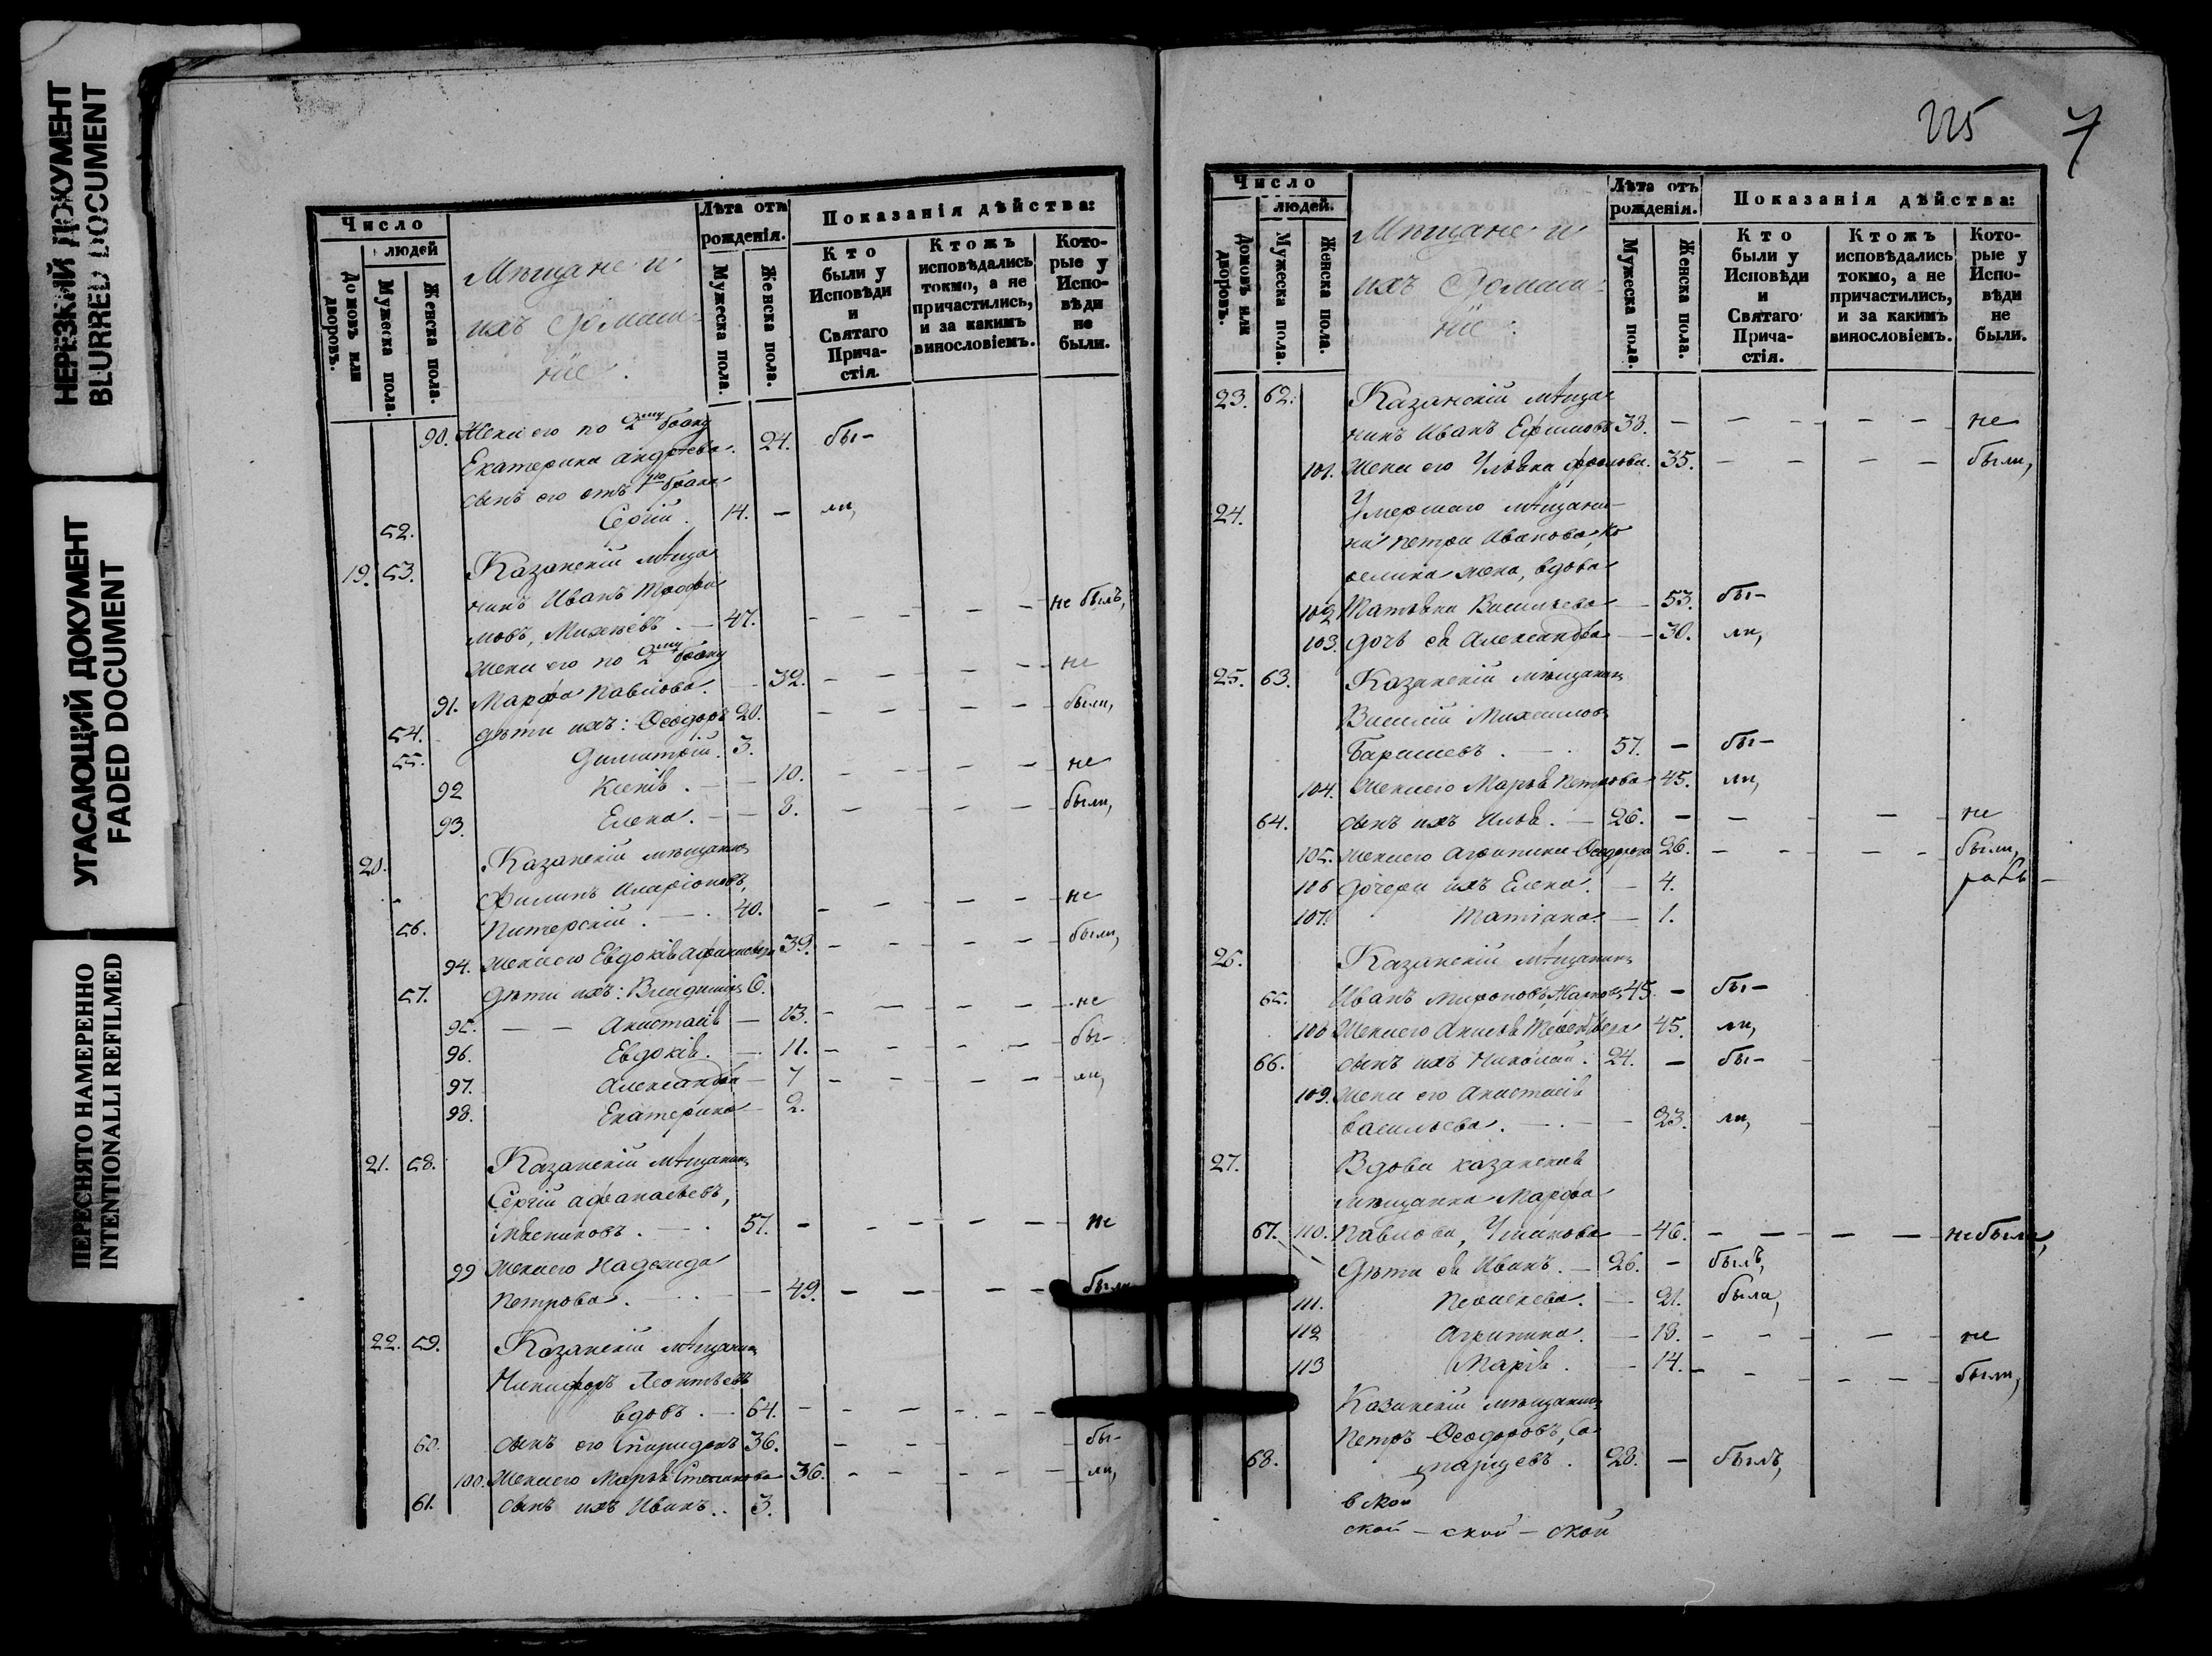 НЕРЕЗКИЙ ДОКУМЕНТ
BLURRED DOCUMENT
УГАСАЮЩИЙ ДОКУМЕНТ
FADED DOCUMENT
ПЕРЕСНЯТО НАМЕРЕННО
INTENTIONALLI REFILMED
Число
людей
Домовъ или дворовъ.
Мужеска пола.
Женска пола.
Мѣщане и
ихъ домаш-
ніе.
Лѣта отъ
рожденія.
Мужеска пола.
Женска пола.
Показанія дѣйства:
Кто были у Исповѣди и Святаго Прича-стія.
Ктожъ исповѣдались токмо, а не причастились, и за какимъ винословіемъ.
Кото-рые у Испо-вѣди не были.
90. Жена его по 2му браку
Екатерина Андреева. 24. бы-
сынъ его отъ 1го брака
52. Сергій. 14. - ли,
19. 53. Казанскій мѣща
нинъ Иванъ Трофи
мовъ, Михѣевъ. - 47. - - - - - не былъ,
жена его по 2му браку
91. Марфа Павлова. - 32. - - - - - не
54. дѣти ихъ: Ѳеодоръ 20. - - - - - были,
55. Димитрій. 3.
92 Ксенія. - 10. - - - - не
93. Елена. - - 8. - - - - были,
20. Казанскій мѣщанинъ
Филипъ Иларіоновъ,
56. Питерскій. - 40. - - - - - не
94. Жена его Евдокія 39. - - - - были,
57. Дѣти ихъ: Владимиръ 6.
95. - - Анастасія - 13. - - - - - не
96. Евдокія. - 11. - - - - - бы-
97. Александра - 7 - - - - ли,
98. Екатерина - 2.
21. 58. Казанскій мѣщанинъ
Сергій Афанасьевъ,
Мясниковъ. - 57. - - - - - - не
99 Жена его Надежда
Петрова. - - 49. - - - - были
22. 59. Казанскій мѣщанинъ
Никифоръ Леонтьевъ
вдовъ. - 64. - - - - - -
60. сынъ его Спиридонъ 36. - - - - бы-
100. Жена его Марья Степанова 36. - - - - - - ли,
61. сынъ ихъ Иванъ.. 3.
225 7
Число
людей.
Домовъ или дворовъ.
Мужеска пола.
Женска пола.
Мѣщане и
ихъ домаш-
ніе.
Лѣта отъ
рожденія.
Мужеска пола.
Женска пола.
Показанія дѣйства:
Кто были у Исповѣди и Святаго Прича-стія.
Ктожъ исповѣдались токмо, а не причастились, и за какимъ винословіемъ.
Кото-рые у Испо-вѣди не были.
23. 62. Казанскій мѣща
нинъ Иванъ Ефимовъ 38. - - - - - не
101. жена его Ульяна Фролова. 35. - - - - были,
24. Умершаго мѣщани-
на Петра Иванова,
жена, вдова
102 Татьяна Васильева - 53. бы-
103. дочь ея Александра - 30. ли,
25. 63. Казанскій мѣщанинъ
Василій Михаиловъ
Барышевъ. - 57. - бы-
104. Жена его Марья Петрова 45. ли,
64. сынъ ихъ Илья. - 26. - - - - - не
105. жена его Агрипина Ѳеодорова 26. - - - - были,
106 дочери ихъ Елена. - 4.
107. Татіана. - 1.
26. Казанскій мѣщанинъ
65. Иванъ Мироновъ, 45. - бы-
108 Жена его Анисья 45. ли,
66. сынъ ихъ Николай. 24. - бы-
109. Жена его Анастасія
Васильева. - - 23. ли,
27. Вдова казанская
мѣщанка Марфа
67. 110. Павлова, - 46. - - - - не была,
Дѣти ея Иванъ. - 26. - былъ,
111. - 21. была,
112 Агрипина. - 18. - - - - не
113 Марія. - 14. - - - - - были,
Казанскій мѣщанинъ
Петръ Ѳеодоровъ,
68. 28. - былъ,
ской - ской - ской